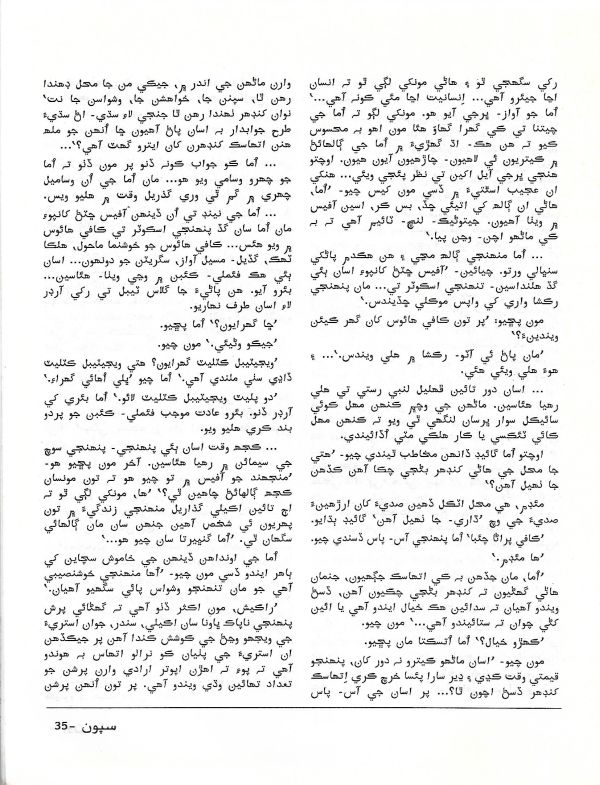 رکي سگهجي ٿو ۽ هاڻي مونکي لڳي ٿو تہ انسان
اڃا جيئرو آهي... اِنسانيت اڃا مئي کونہ آهي...‘
اُما جو آواز- ڀرجي آيو هو. مونکي لڳو تہ اُما جي
چيتنا تي کي گهرا گهاوَ هئا مون اهو بہ محسوس
ڪيو تہ هن هڪ- اڌ گهڙيءَ ۾ اُما جي ڳالهائڻ
۾ ڪيتريون ئي لاهيون- چاڙهيون آيون هيون. اوچتو
هنجي ڀرجي آيل اکين تي نظر پئجي ويئي... هنکي
ان عجيب اسٿتيءَ ۾ ڏسي مون کيس چيو- ’اُما،
هاڻي ان ڳالھ کي اتيئي ڇڏ، بس ڪر، اسين آفيس
۾ ويٺا آهيون. جيتوڻيڪ- لنچ- ٽائيم آهي تہ بہ
کي ماڻهو اچن- وڃن پيا.‘
... اُما منهنجي ڳالھ مڃي ۽ هن هڪدم پاڻکي
سنڀالي ورتو. چيائين- ’آفيس ڇٽڻ کانپوءِ اسان ٻئي
گڏ هلنداسين- تنهنجي اسڪوٽر تي... مان پنهنجي
رڪشا واري کي واپس موڪلي ڇڏيندس.‘
مون پڇيو: ’پر تون ڪافي هائوس کان گهر ڪيئن
ويندينءَ؟‘
’مان پاڻ ئي آٽو- رڪشا ۾ هلي ويندس.‘... ۽
هوءَ هلي ويئي هئي.
... اسان دور تائين ڦهليل لنبي رستي تي هلي
رهيا هئاسين. ماڻهن جي وچ۾ ڪنهن مهل ڪوئي
سائيڪل سوار ڀرسان لنگهي ٿي ويو تہ ڪنهن مهل
ڪائي ٽئڪسي يا ڪار هلڪي مٽي اُڏائيندي.
اوچتو اُما گائيڊ ڏانهن مخاطب ٿيندي چيو- ’هتي
جا محل جي هاڻي کنڊهر بڻجي چڪا آهن ڪڏهن
جا ٺهيل آهن؟‘
مئڊم، هي محل اٽڪل ڏهين صديءَ کان ارڙهينءَ
صديءَ جي وچ ’ڌاري- جا ٺهيل آهن‘ گائيڊ ٻڌايو.
’ڪافي پراڻا چئبا‘ اُما پنهنجي آس- پاس ڏسندي چيو.
’ها مئڊم.‘
’اُما، مان جڏهن بہ کي اتهاسڪ جڳهيون، جنمان
هاڻي گهڻيون تہ کنڊهر بڻجي چڪيون آهن، ڏسڻ
ويندو آهيان تہ سدائين هڪ خيال ايندو آهي يا ائين
کڻي چوان تہ ستائيندو آهي...‘ مون چيو.
’ڪهڙو خيال؟‘ اُما اُتسڪتا مان پڇيو.
مون چيو- ’اسان ماڻهو ڪيترو نہ دور کان، پنهنجو
قيمتي وقت ڪڍي ۽ ڍير سارا پئسا خرچ ڪري اِتهاسڪ
کنڊهر ڏسڻ اچون ٿا؟... پر اسان جي آس- پاس
وارن ماڻهن جي اندر ۾، جيڪي من جا محل ڊهندا
رهن ٿا، سپنن جا، خواهشن جا، وشواسن جا نت‘
نوان کنڊهر ٺهندا رهن ٿا جنجي لاءِ سڌي- اڻ سڌيءَ
طرح جوابدار بہ اسان پاڻ آهيون ڇا اُنهن جو ملھ
هنن اتهاسڪ کنڊهرن کان ايترو گهٽ آهي؟‘...
... اُما کو جواب ڪونہ ڏنو پر مون ڏٺو تہ اُما
جو چهرو وسامي ويو هو... مان اُما جي اُن وساميل
چهري ۾ گم ٿي وري گذريل وقت ۾ هليو ويس.
... اُما جي نينڊ تي اُن ڏينهن آفيس ڇٽڻ کانپوءِ
مان اُما سان گڏ پنهنجي اسڪوٽر تي ڪافي هائوس
۾ ويو هئس... ڪافي هائوس جو خوشنما ماحول، هلڪا
ٽهڪ، گڏيل- مسيل آواز، سگريٽن جو دونهون... اسان
ٻئي هڪ فئملي- ڪئبن ۾ وڃي ويٺا- هئاسين...
بئرو آيو. هن پاڻيءَ جا گلاس ٽيبل تي رکي آرڊر
لاءِ اسان طرف نهاريو.
’ڇا گهرايون؟‘ اُما پڇيو.
’جيڪو وڻيئي.‘ مون چيو.
’ويجيٽيبل ڪٽليٽ گهرايون؟ هتي ويجيٽيبل ڪٽليٽ
ڏاڍي سٺي ملندي آهي.‘ اُما چيو ’ڀلي اُهائي گهراءِ.‘
’دو پليٽ ويجيٽيبل ڪٽليٽ لائو.‘ اُما بئري کي
آرڊر ڏنو. بئرو عادت موجب فئملي- ڪئبن جو پردو
بند ڪري هليو ويو.
... ڪجھ وقت اسان ٻئي پنهنجي- پنهنجي سوچ
جي سيمائن ۾ رهيا هئاسين. آخر مون پڇيو هو-
’منجهند جو آفيس ۾ تو چيو هو تہ تون مونسان
ڪجھ ڳالهائڻ چاهين ٿي؟‘ ’ها، مونکي لڳي ٿو تہ
اڄ تائين اڪيلي گذاريل منهنجي زندگيءَ ۾ تون
پهريون ئي شخص آهين جنهن سان مان ڳالهائي
سگهان ٿي. ’اُما گنڀيرتا سان چيو هو...‘
اُما جي اونداهن ڏينهن جي خاموش سچاين کي
ٻاهر ايندو ڏسي مون چيو- ’اُها منهنجي خوشنصيبي
آهي جو مان تنهنجو وشواس پائي سگهيو آهيان.‘
’راڪيش، مون اڪثر ڏٺو آهي تہ گهڻائي پرش
پنهنجي ناپاڪ ڀاونا سان اڪيلي، سندر، جوان استريءَ
جي ويجهو وڃڻ جي ڪوشش ڪندا آهن پر جيڪڏهن
ان استريءَ جي پٺيان کو نرالو اتهاس بہ هوندو
آهي تہ پوءِ تہ اهڙن اپوتر ارادي وارن پرشن جو
تعداد تهائين وڌي ويندو آهي. پر تون اُنهن پرشن
سپون -35